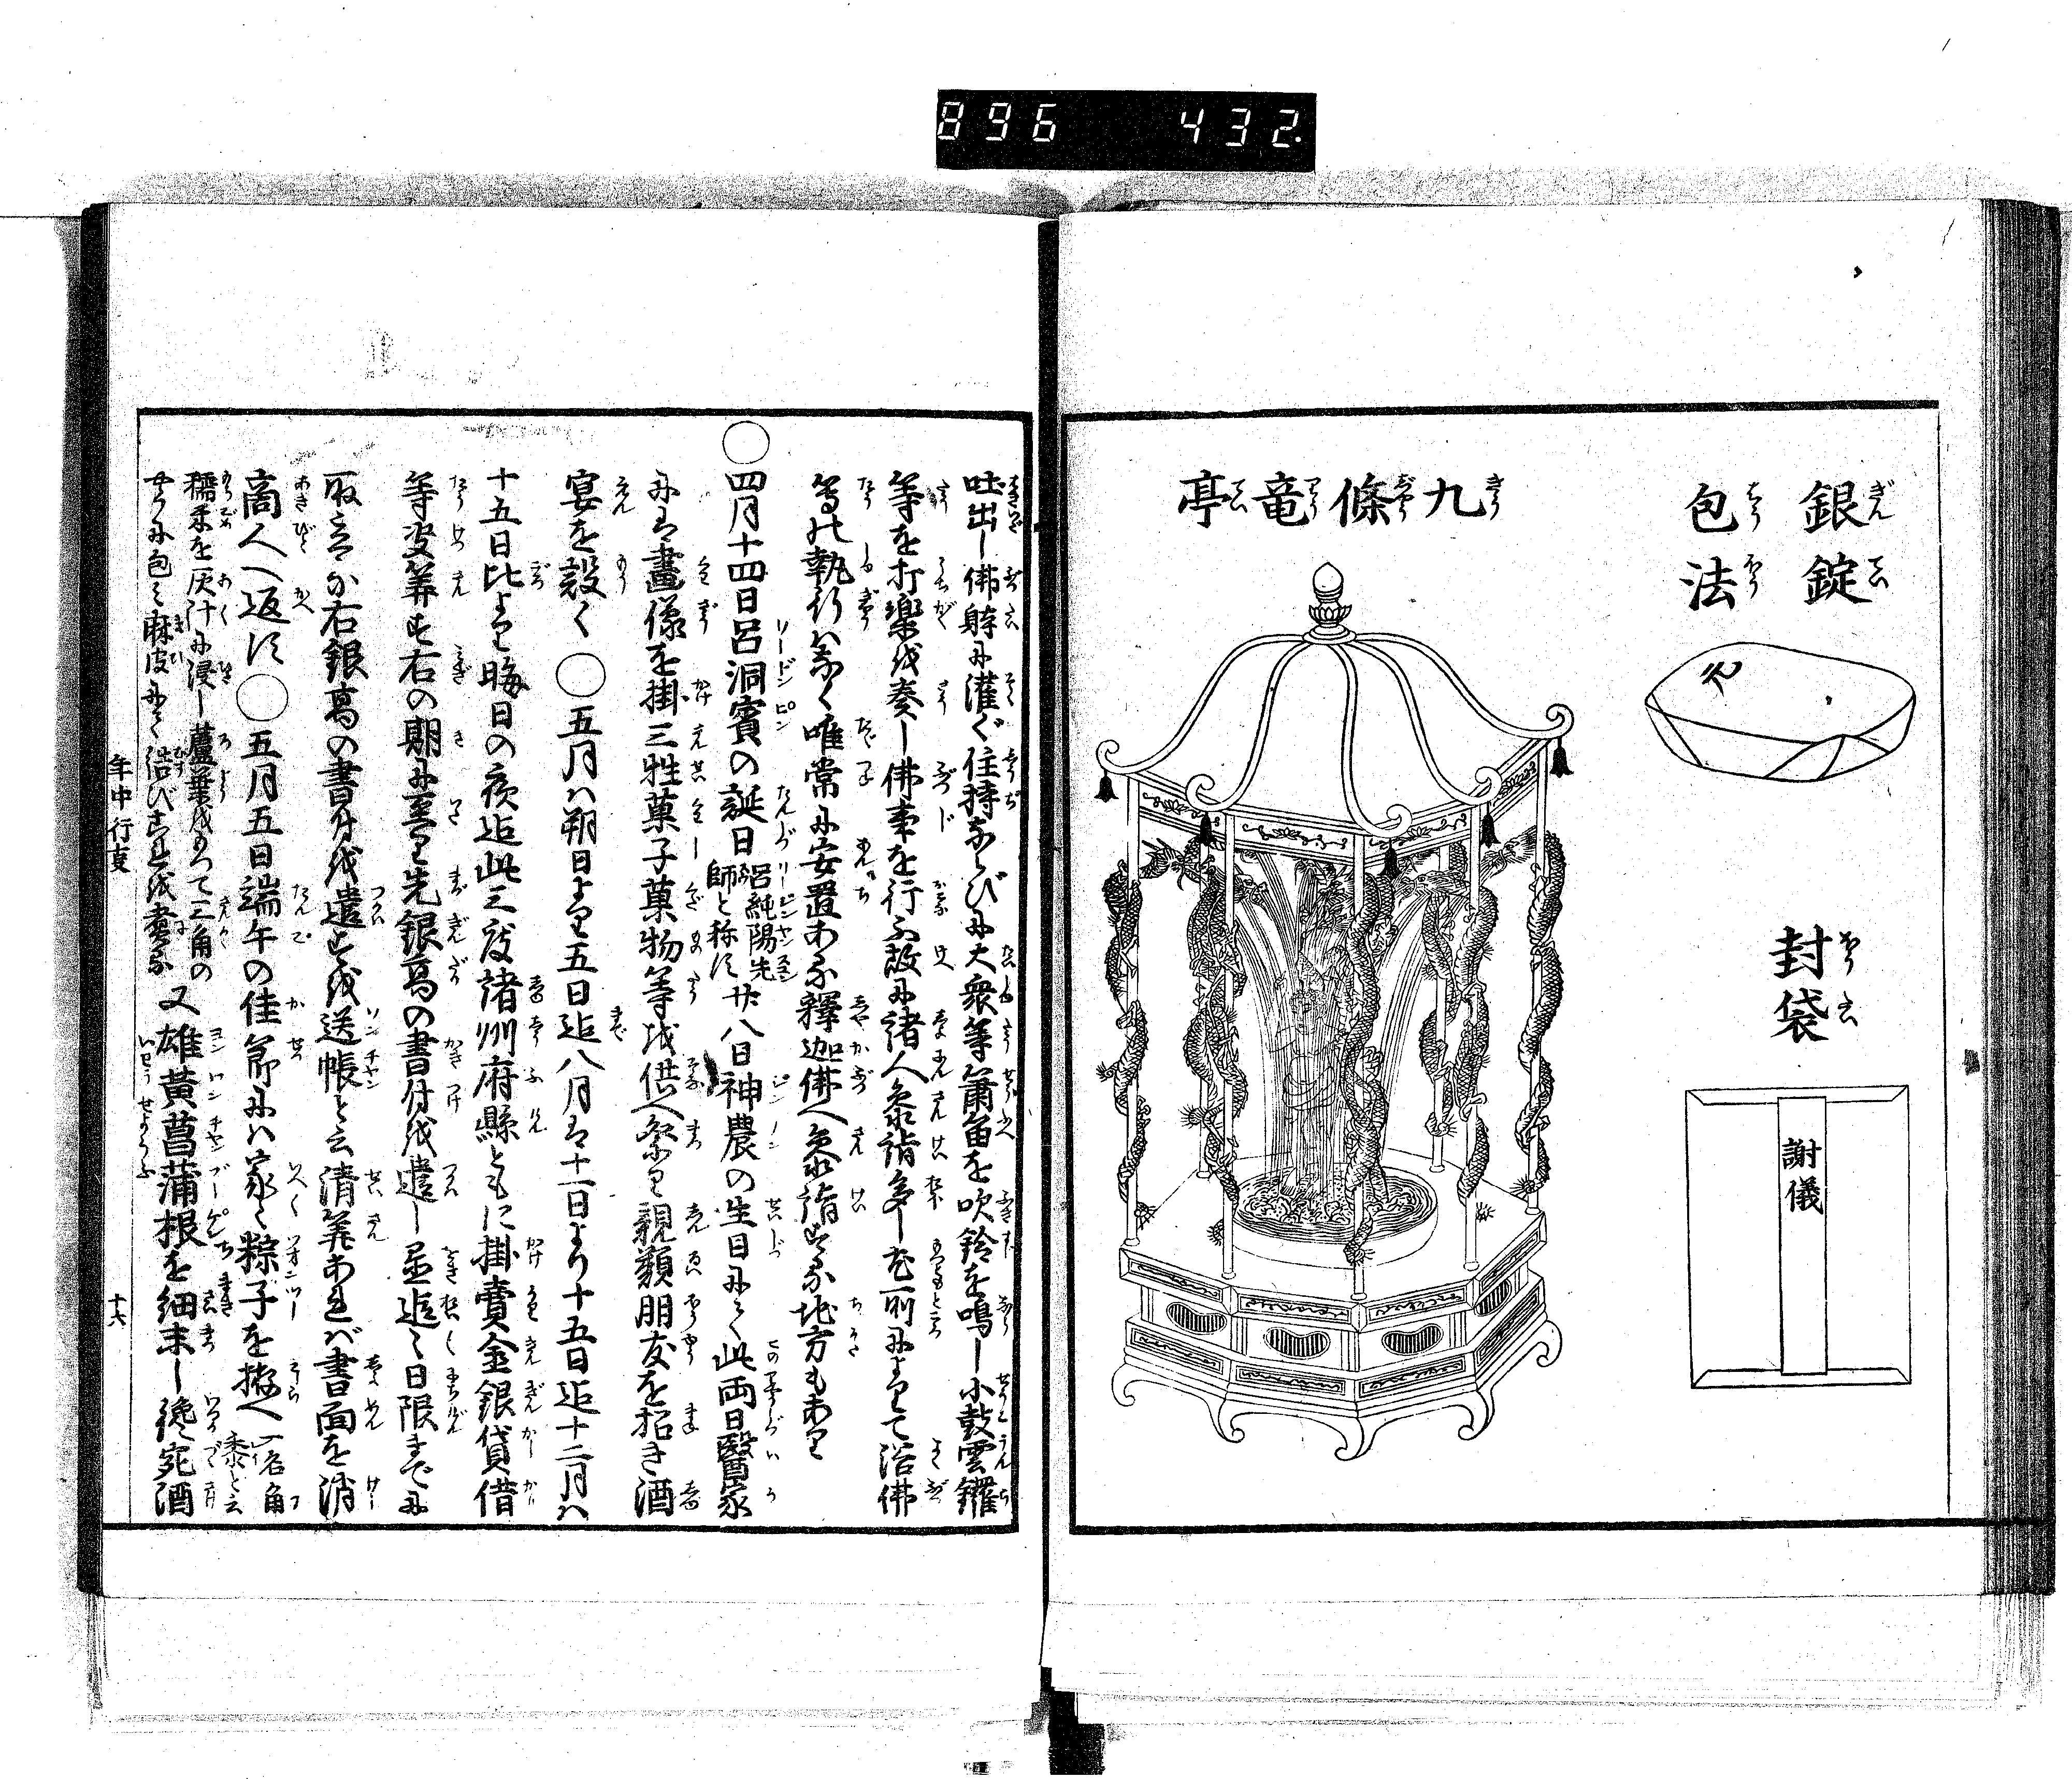 896 432.
銀錠
包法
封袋
謝儀
九條竜亭
吐出し佛躰に灌ぐ住持ならびに大衆等簫笛を吹鈴を鳴し小鼓雲鑼
等を打楽を奏し佛事を行ふ故に諸人参詣多し尤所によりて浴佛
等の執行はなく唯常に安置ある釋迦佛へ参詣する地方もあり
○四月十四日呂洞賓の誕日呂純陽先師と称す廿八日神農の生日にて此両日醫家
には畫像を掛三牲菓子菓物等を供へ祭り親類朋友を招き酒
宴を設く○五月は朔日より五日迄八月は十一日より十五日迄十二月は
十五日比より晦日の夜迄此三度諸州府縣ともに掛賣金銀貸借
等決算す右の期に至り先銀高の書付を遣し置追々日限までに
取立るが右銀高の書付を遣すを送帳と云清算あれば書面を消
商人へ返す○五月五日端午の佳節には家々粽子を拵へ一名角黍と云
糯米を灰汁に浸し蘆葉をもつて三角の
やうに包み麻皮にて結びこれを煮る又雄黄菖蒲根を細末し攙宛酒
年中行事
十六